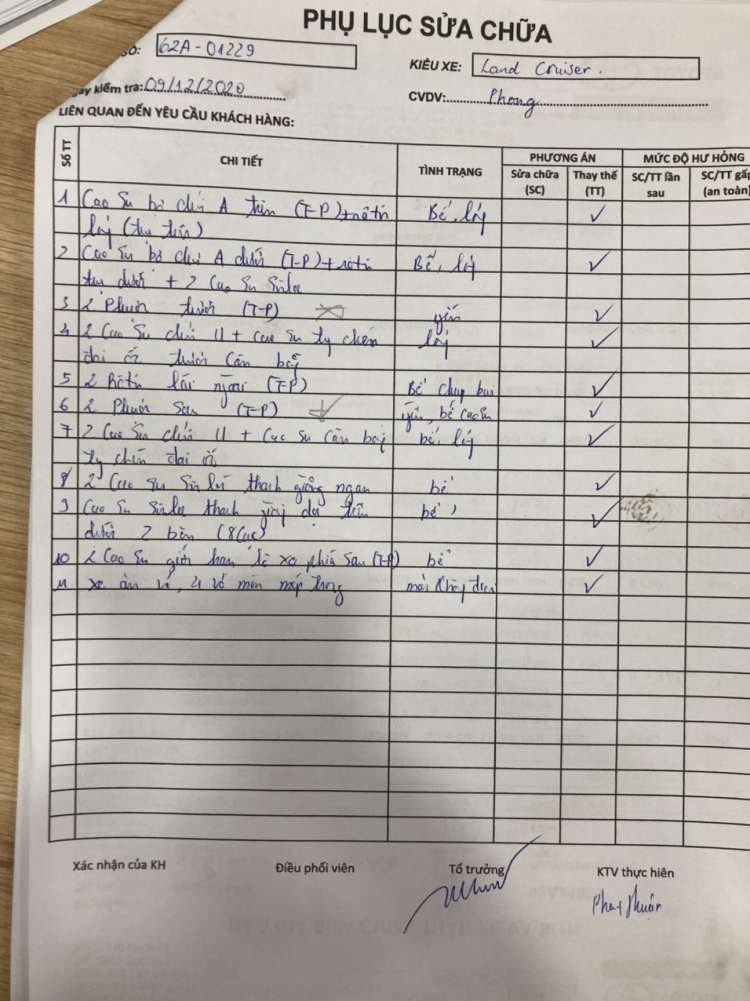 PHỤ LỤC SỬA CHỮA
SỐ: 62A-01229
KIỂU XE: Land Cruiser.
ày kiểm tra: 09/12/2020
CVDV: Phong
LIÊN QUAN ĐẾN YÊU CẦU KHÁCH HÀNG:
Số TT CHI TIẾT TÌNH TRẠNG PHƯƠNG ÁN MỨC ĐỘ HƯ HỎNG
Sửa chữa (SC) Thay thế (TT) SC/TT lần sau SC/TT gấp (an toàn)
1 Cao Su bò chữ A trên (T-P) + rôtin Bể, lỏy ✓
lỏy (trụ trên)
2 Cao Su bò chữ A dưới (T-P) + rôtin Bể, lỏy ✓
trụ dưới + 2 Cao Su
3 2 Phuộc trước (T-P) yếu ✓
4 2 Cao Su chữ U + Cao Su ty chén lỏy ✓
đai ốc trước Cân bằg
5 2 Rôtin lái ngoài (T-P) Bể chụp bụi ✓
6 2 Phuộc Sau (T-P) yếu, bể cao su ✓
7 2 Cao Su chữ U + Cao Su Cân bằg bể, lỏy ✓
ty chén đai ốc
8 2 Cao Su thanh giằng ngang bể ✓
9 Cao Su thanh giằg dọc trên bể ✓
dưới 2 bên (8 Cục)
10 2 Cao Su giới hạn lò xo phía sau (T-P) bể ✓
11 xe ăn vỏ, 4 vỏ mòn mép trong mòn không đều ✓
Xác nhận của KH Điều phối viên Tổ trưởng KTV thực hiên